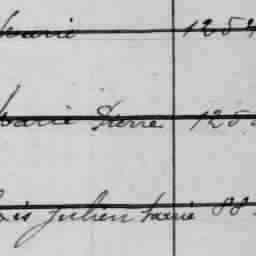 Marie 125
Marie Pierre 125
ois Julien Marie 88